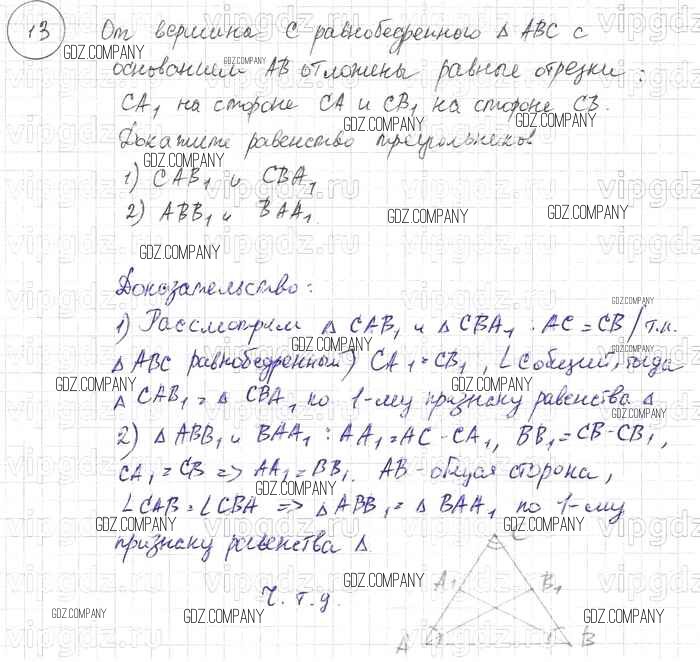 13 От вершина С равнобедренного Δ ABC с
основанием AB отложены равные отрезки:
CA₁ на стороне CA и CB₁ на стороне CB.
Докажите равенство треугольников
1) CAB₁ и CBA₁
2) ABB₁ и BAA₁.
Доказательство:
1) Рассмотрим Δ CAB₁ и Δ CBA₁ : AC = CB /т.к.
Δ ABC равнобедренный) CA₁ = CB₁, ∠C общий, тогда
Δ CAB₁ = Δ CBA₁ по 1-му признаку равенства Δ
2) Δ ABB₁ и BAA₁ : AA₁ = AC - CA₁, BB₁ = CB - CB₁,
CA₁ = CB => AA₁ = BB₁. AB - общая сторона,
∠CAB = ∠CBA => Δ ABB₁ = Δ BAA₁ по 1-му
признаку равенства Δ
Ч.т.д.
C
A₁ B₁
A B
GDZ.COMPANY
vipgdz.ru